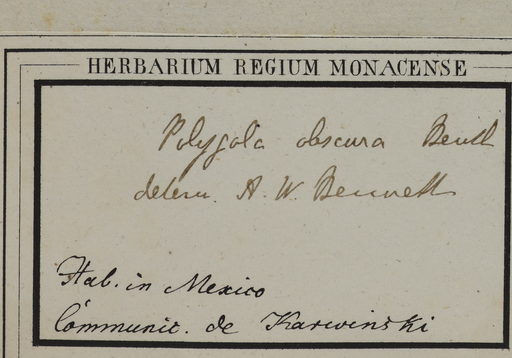 HERBARIUM REGIUM MONACENSE
Polygola obscura Benth
determ. A. W. Bennett
Hab. in Mexico
Communic. de Karwinski